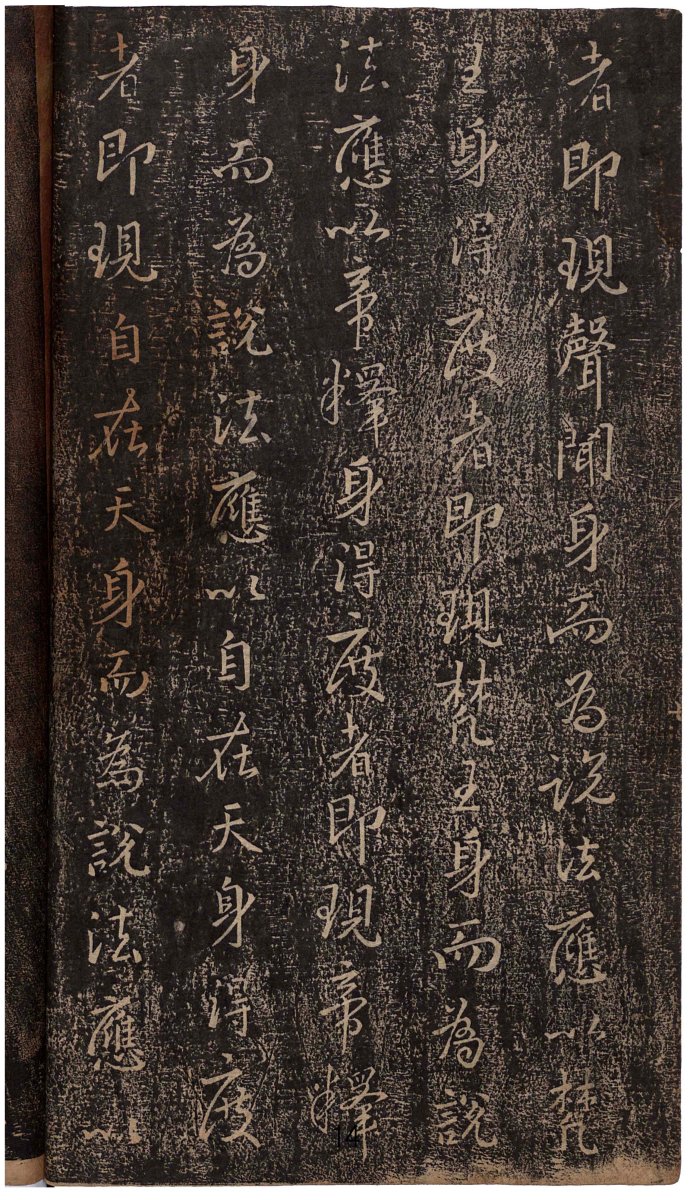 者即現聲聞身而為說法應以梵
王身得度者即現梵王身而為說
法應以帝釋身得度者即現帝釋
身而為說法應以自在天身得度
者即現自在天身而為說法應以
14